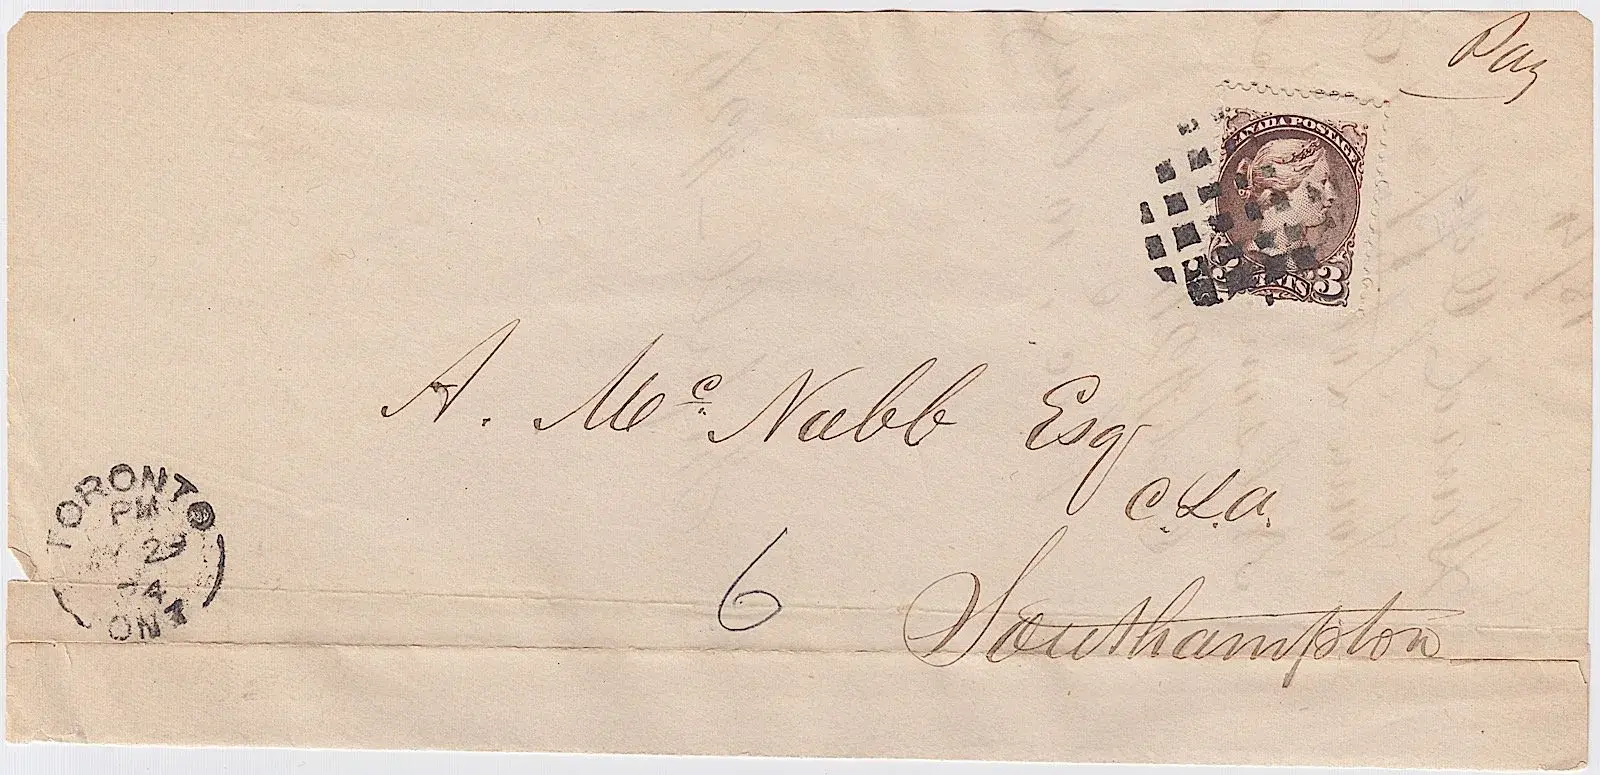 Pay
CANADA POSTAGE
3 CENTS 3
A. Mc. Nabb Esq
C.L.A.
Southampton
6
TORONTO
PM
MY 29
74
ONT